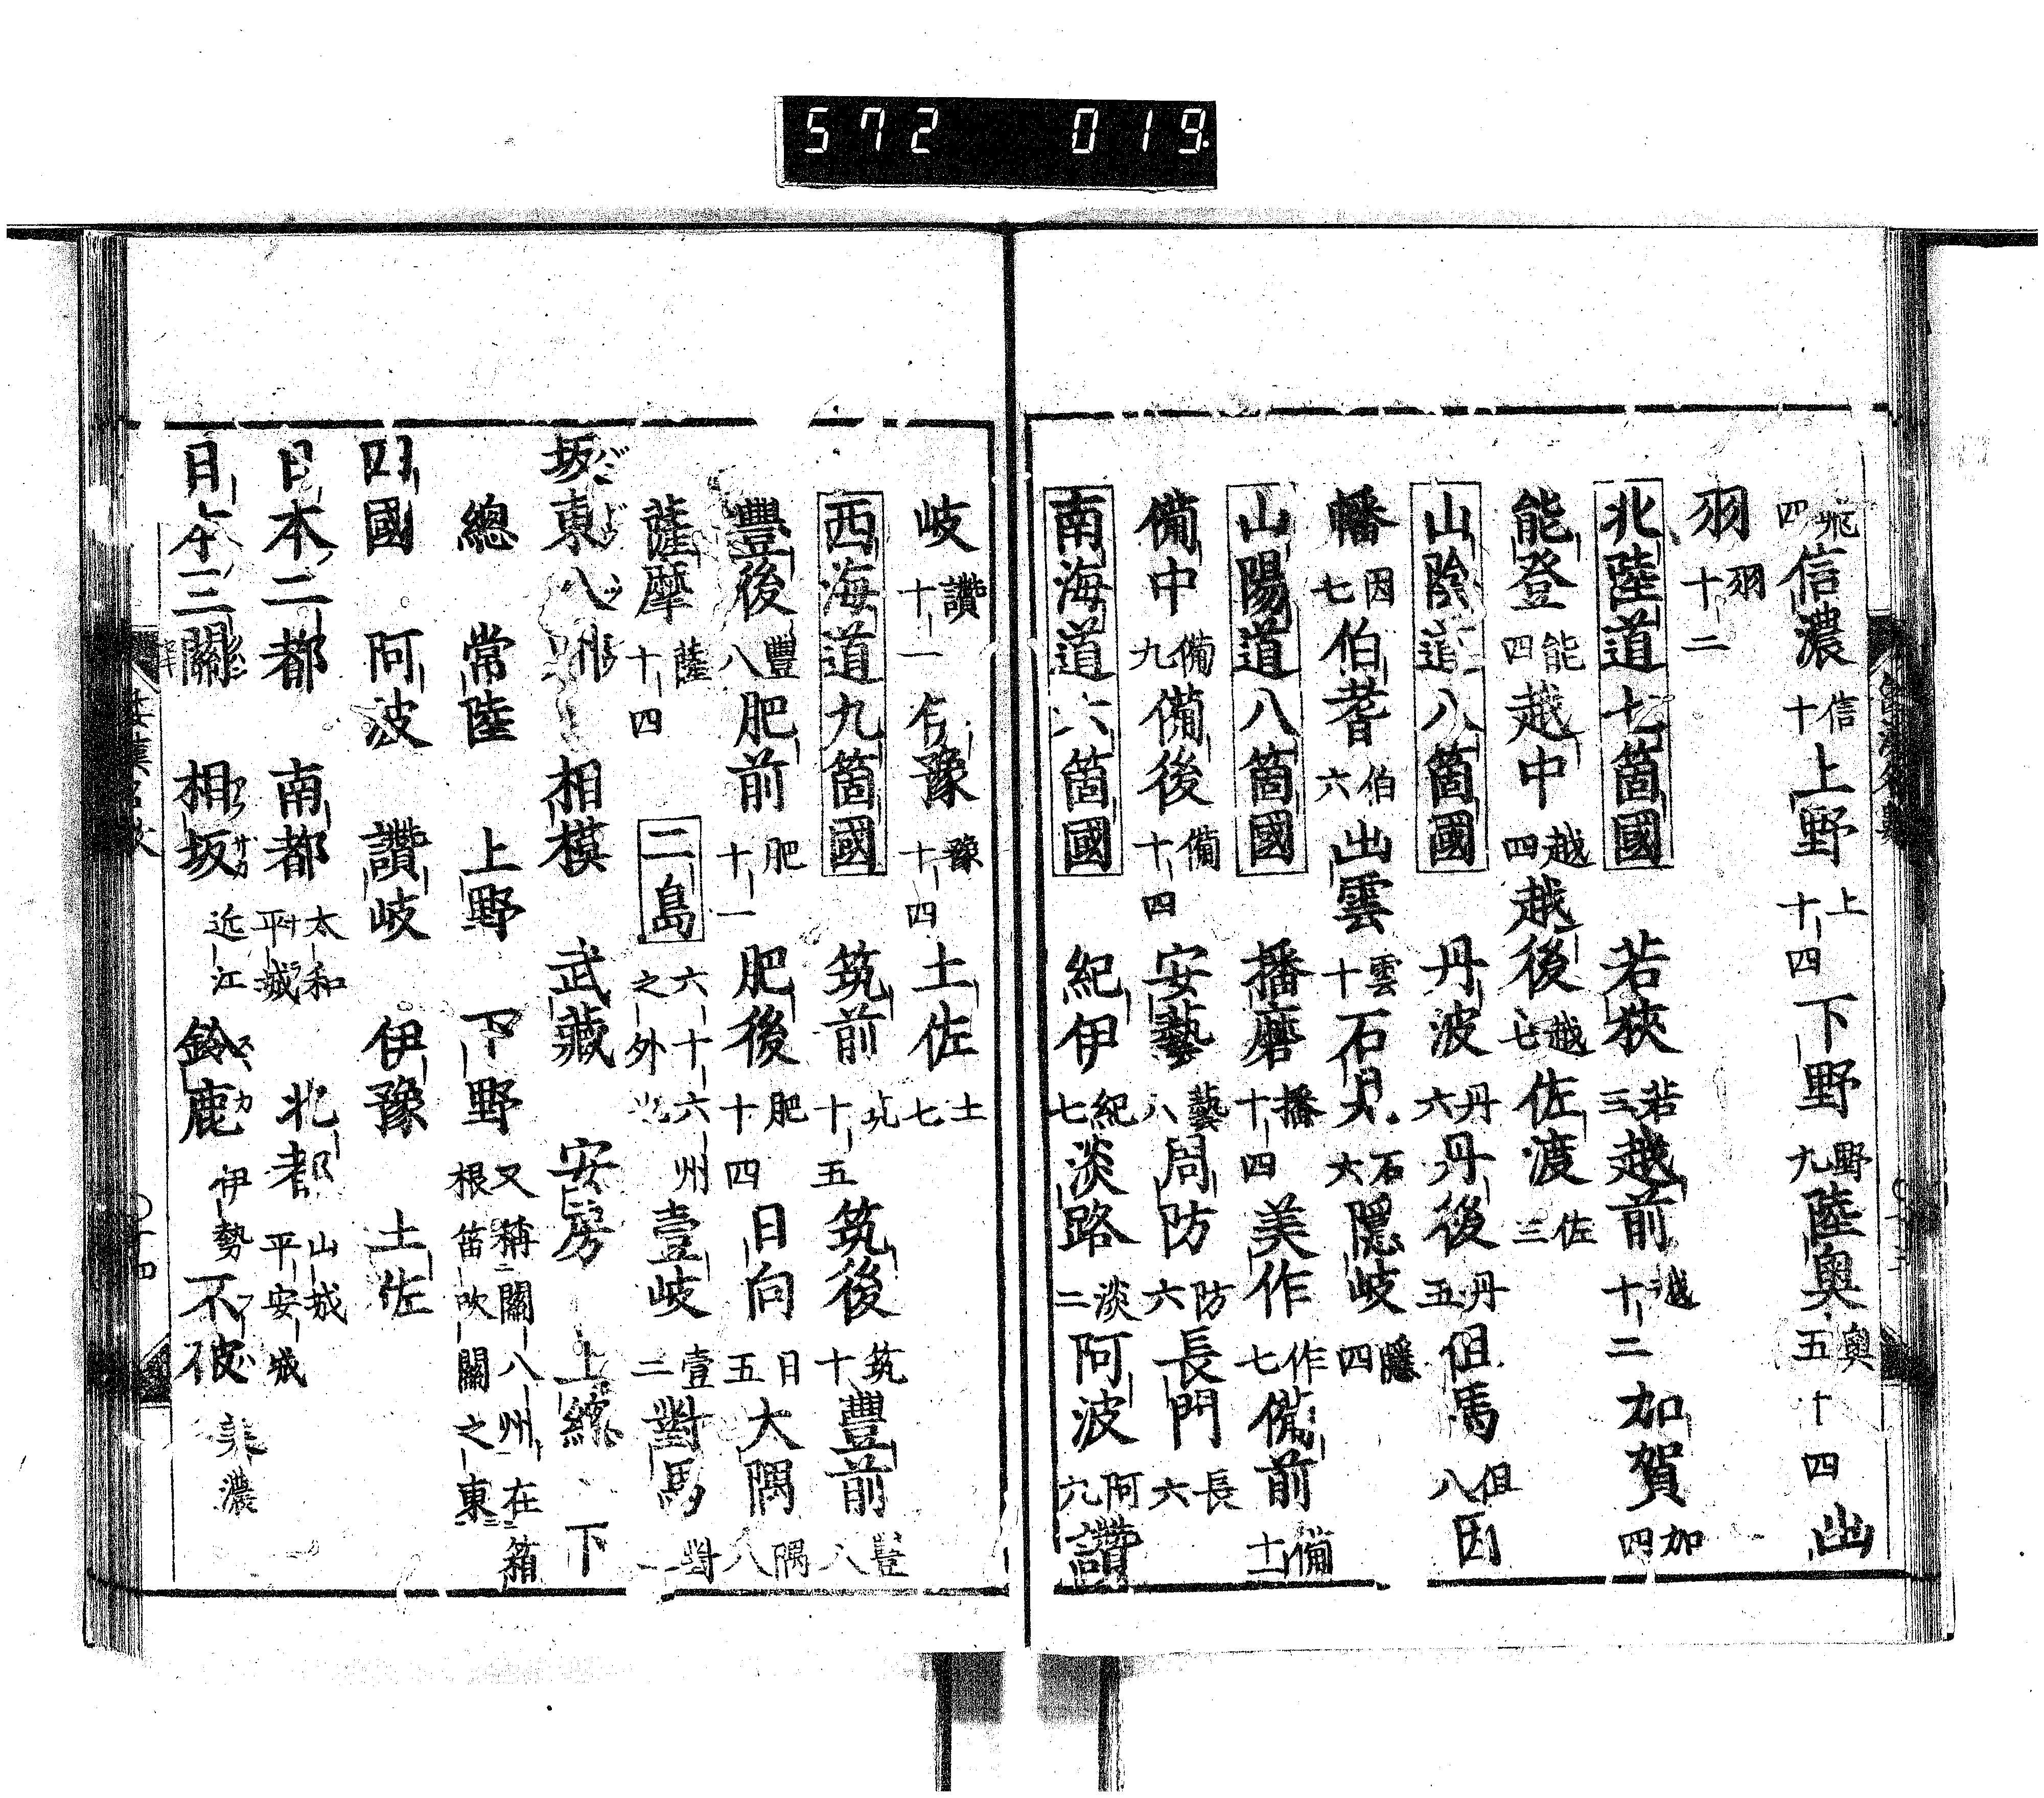 572 019
飛四信濃信十上野上十四下野野九陸奥奥五十四出
羽羽十二
北陸道七箇國 若狹若三越前越十二加賀加四
能登能四越中越四越後越七佐渡佐三
山陰道八箇國 丹波丹六丹後丹五但馬但八因
幡因七伯耆伯六出雲雲十石見石六隱岐隱四
山陽道八箇國 播磨播十四美作作七備前備十一
備中備九備後備十四安藝藝八周防防六長門長六
南海道六箇國 紀伊紀七淡路淡二阿波阿九讚
岐讚十一伊豫豫十四土佐土七
西海道九箇國 筑前筑十五筑後筑十豐前豐八
豐後豐八肥前肥十一肥後肥十四日向日五大隅隅八
薩摩薩十四 二島六十六州之外 壹岐壹二對馬對一
坂東八州 相模 武藏 安房 上總 下
總 常陸 上野 下野又稱關八州在箱根笛吹關之東
四國 阿波 讚岐 伊豫 土佐
日本二都 南都太和平城 北都山城平安城
日本三關 相坂近江 鈴鹿伊勢 不破美濃